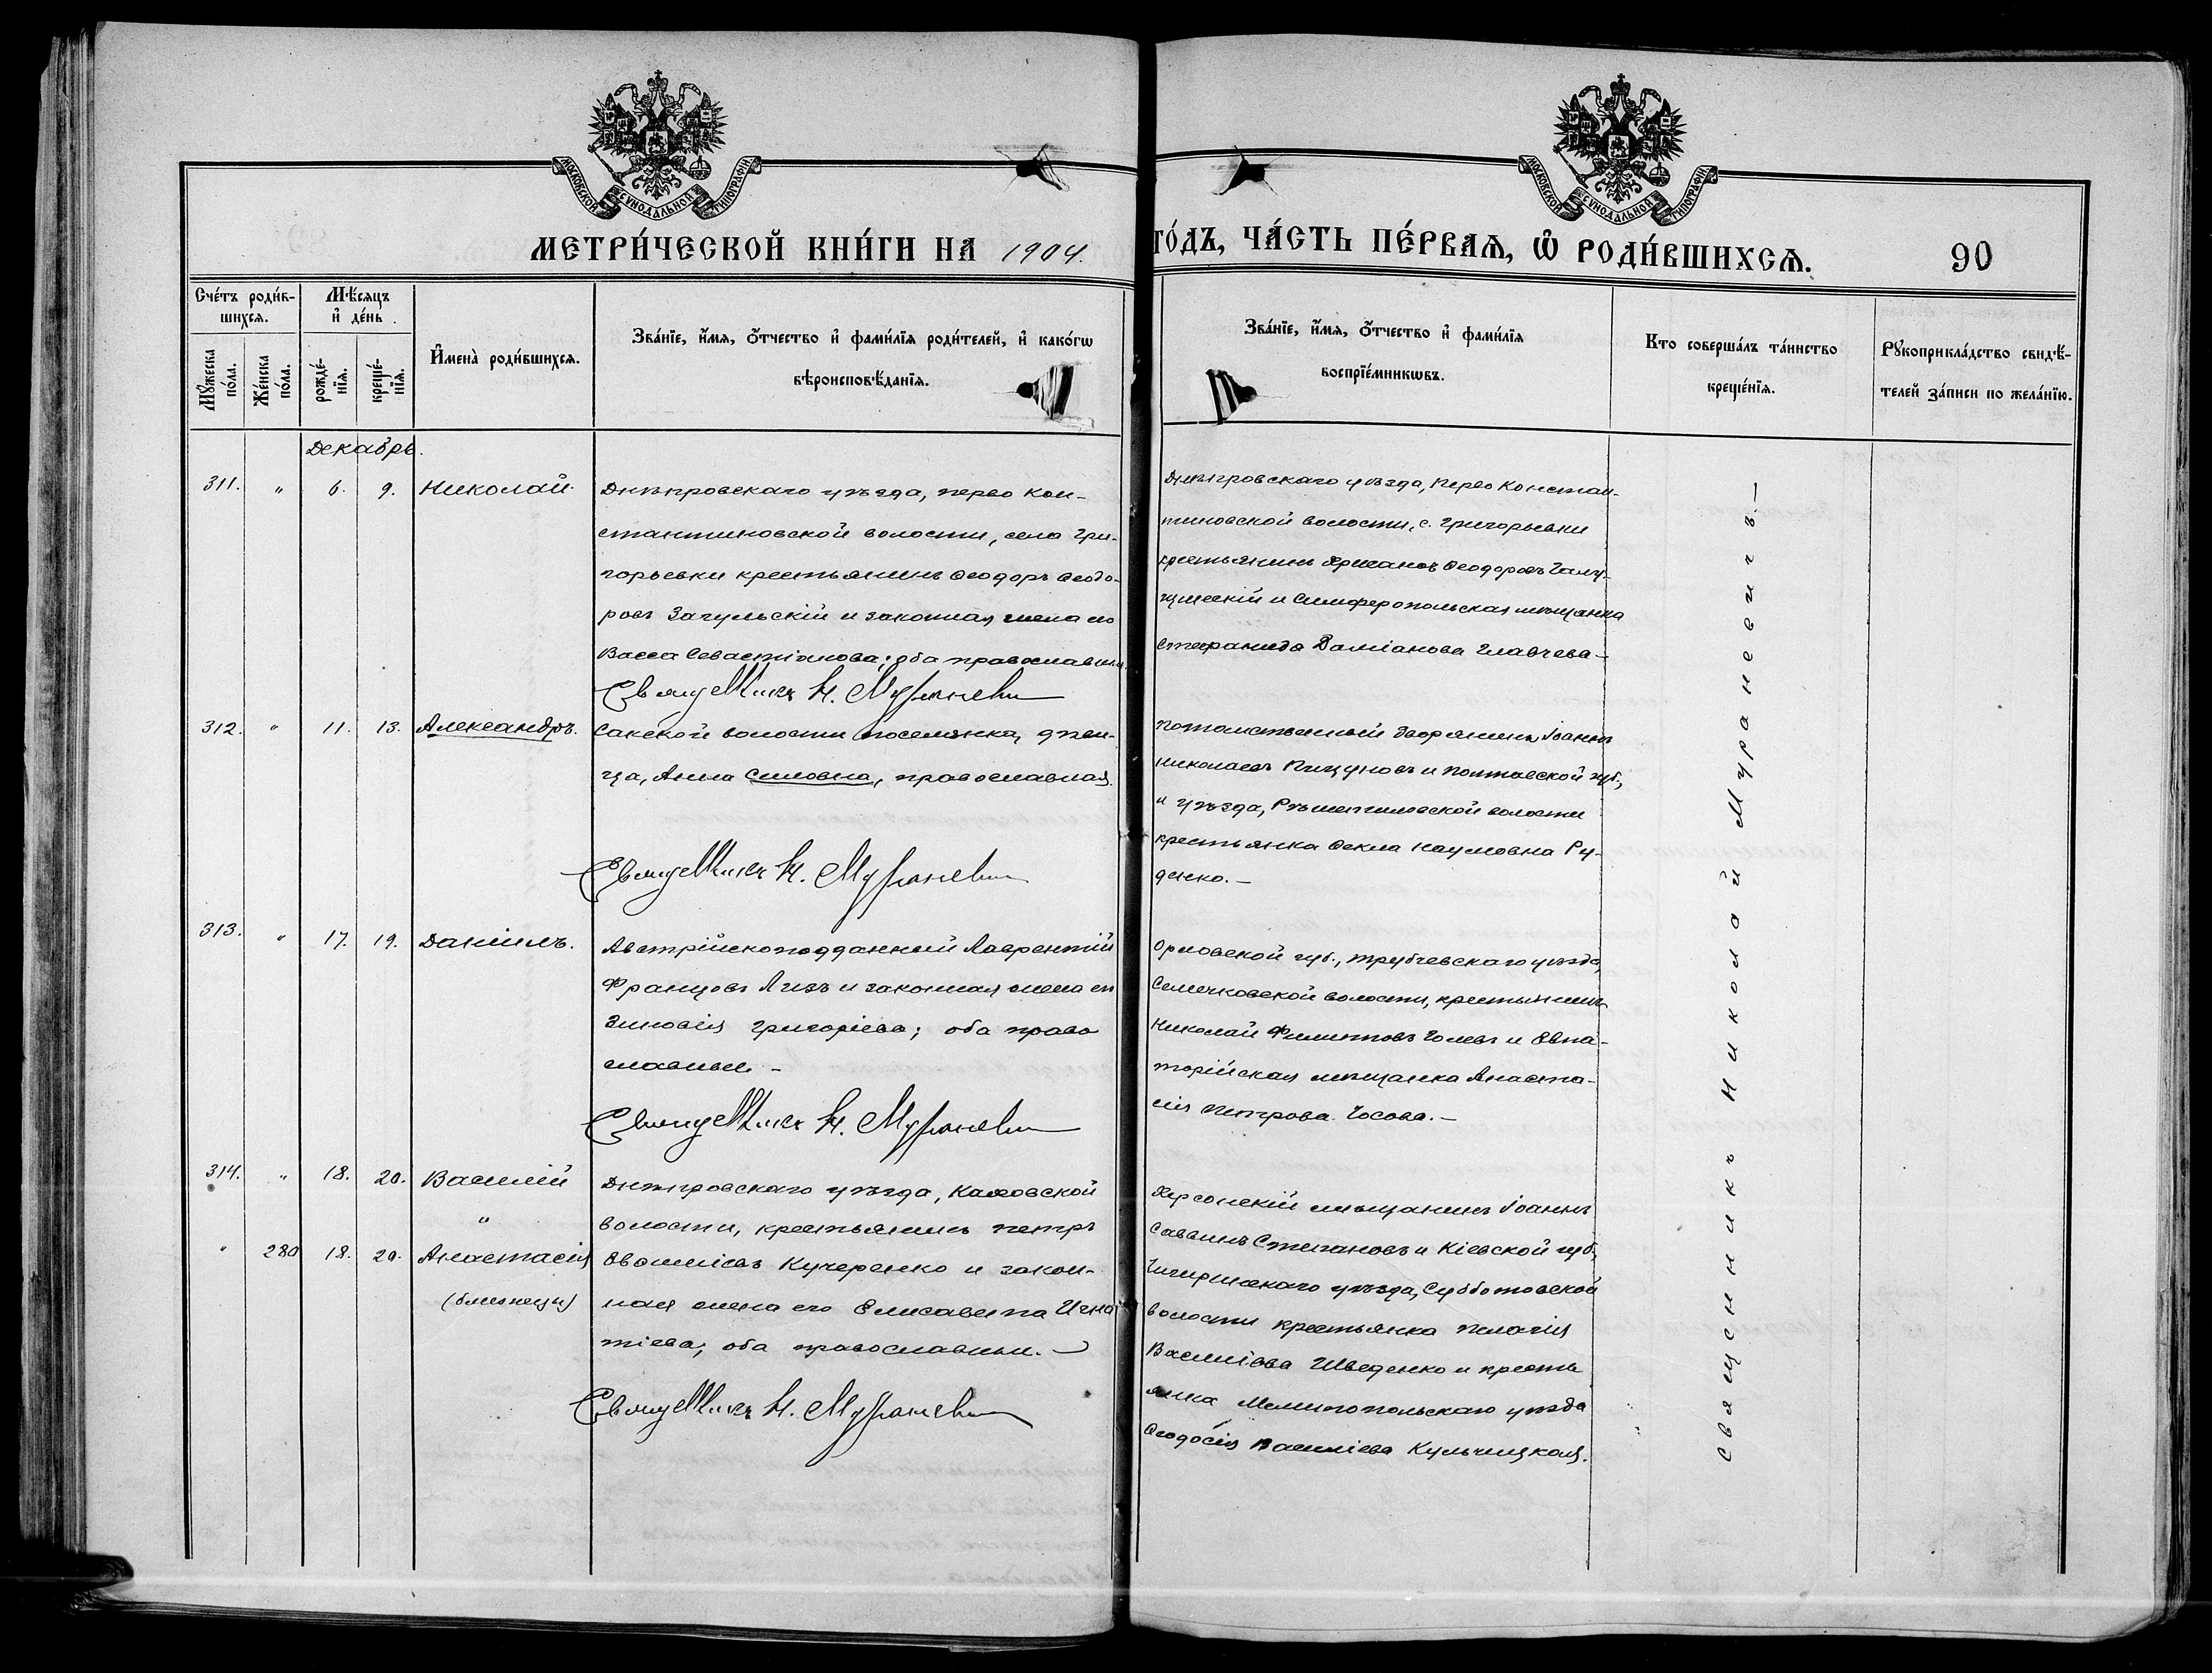 МОСКОВСКОЙ СУНОДАЛЬНОЙ ТИПОГРАФІИ
МОСКОВСКОЙ СУНОДАЛЬНОЙ ТИПОГРАФІИ
МЕТРИ́ЧЕСКОЙ КНИ́ГИ НА 1904.
ГО́ДЪ, ЧА́СТЬ ПЕ́РВАѦ, Ѿ РОДИ́ВШИХСѦ.
90
Сче́тъ роди́в-
шихсѧ.
Мѣ́сѧцъ
и҆ де́нь
Мꙋ́жеска
по́ла.
Же́нска
по́ла.
рожде́-
нїѧ.
креще́-
нїѧ.
И҆мена̀ роди́вшихсѧ.
Зва́нїе, и҆́мѧ, ѻ҆́тчество и҆ фами́лїѧ роди́телей, и҆ како́гѡ
вѣроисповѣ́данїѧ.
Зва́нїе, и҆́мѧ, ѻ҆́тчество и҆ фами́лїѧ
воспрїе́мникѡвъ.
Кто соверша́лъ та́инство
креще́нїѧ.
Рꙋкоприкла́дство свидѣ́-
телей за́писи по жела́нїю.
Декабрь.
311. " 6. 9. Николай.
Днѣпровскаго уѣзда, перво Кон-
стантиновской волости, села Гри-
горьевки крестьянинъ Ѳеодоръ Ѳеодо-
ровъ Загульскій и законная жена его
Васса Севастіанова; оба православные.
Свящ
Н. Мураневи
Днѣпровскаго уѣзда, Перво Констан-
тиновской волости, с. Григорьевки
крестьянинъ Ѳеодоровъ
и Симферопольская мѣщанка
Стефанида Даміанова Главчева
312. " 11. 13. Александръ.
Сакской волости поселянка, дѣви-
ца, Анна Силовна, православная.
Н. Мураневи
Потомственный дворянинъ Іоаннъ
Николаевъ Пицуновъ и Полтавской губ.,
и уѣзда, Рѣшетиловской волости
крестьянка Ѳекла Наумовна Ру-
денко.
313. " 17. 19. Даніилъ.
Австрійскоподданный Лаврентій
Францовъ и законная жена его
Зиновія Григоріева; оба право
славные
Н. Мураневи
Орловской губ., Трубчевскаго уѣзда,
Семячковской волости, крестьянинъ
Николай Филипповъ Голевъ и Евпа-
торійская мѣщанка Анаста-
сія Петрова Чосова.
314. " 18. 20. Василій
"
" 280 18. 20. Анастасія
(близнецы)
Днѣпровскаго уѣзда, Каховской
волости, крестьянинъ Петръ
Евѳиміевъ Кучеренко и закон-
ная жена его Елисавета Игна
тіева; оба православные.
Н. Мураневи
Херсонскій мѣщанинъ Іоаннъ
Саввинъ Степановъ и Кіевской губ.,
Чигиринскаго уѣзда, Субботовской
волости крестьянка Пелагія
Василіева Шведенко и кресть
янка Мелитопольскаго уѣзда
Ѳеодосія Василіева Кульчицкая.
Священникъ Николай Мураневичъ.